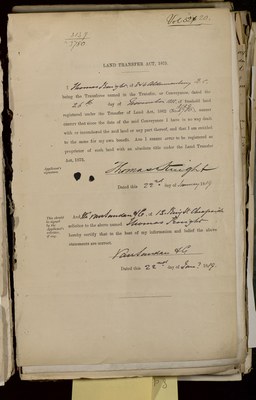 LAND TRANSFER ACT, 1875.
I Thomas Knight of 204 Aldermanbury E.C.
being the Transferee named in the Transfer, or Conveyance dated the
25th day of November 1878 of freehold land
registered under the Transfer of Land Act, 1862
assure that since the date of the said Conveyance I have in no way dealt
with or incumbered the said land or any part thereof, and that I am entitled
to the same for my own benefit. And I consent to be registered as
proprietor of such land with an absolute title under the Land Transfer
Act, 1875.
Applicant's
signature.
Thomas Knight
Dated this 22nd day of January 1879
This should
be signed
by the
Applicant's
solicitor,
if any.
And We Vanlandeu & Co of 13 King St Cheapside
solicitor to the above named Thomas Knight
hereby certify that to the best of my information and belief the above
statements are correct.
& Co
Dated this 22nd day of Jany 1879.